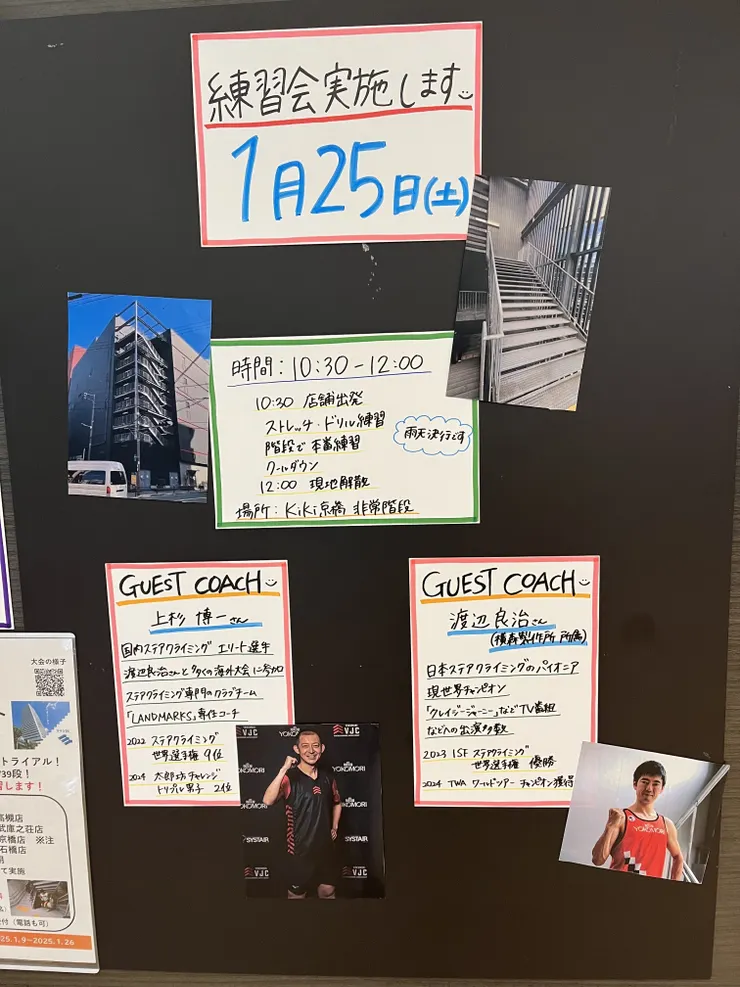 練習会実施します
1月25日(土)
時間：10:30-12:00
10:30 店舗出発
ストレッチ・ドリル練習
階段で本番練習
クールダウン
12:00 現地解散
雨天決行です
場所：Kiki京橋 非常階段
GUEST COACH
上杉 博一さん
国内ステアクライミング エリート選手
渡辺良治さんと多くの海外大会に参加
ステアクライミング専門のクラブチーム
「LANDMARKS」専任コーチ
2022 ステアクライミング
世界選手権 9位
2024 太郎坊チャレンジ
トリプル男子 2位
GUEST COACH
渡辺 良治さん
(横森製作所 所属)
日本ステアクライミングのパイオニア
現世界チャンピオン
「クレイジージャーニー」などTV番組
などへの出演多数
2023 ISF ステアクライミング
世界選手権 優勝
2024 TWA ワールドツアー チャンピオン獲得
VJC
YOKOMORI
SYSTAIR
VJC
YOKOMORI
大会の様子
トライアル！
739段！
習します！
高槻店
武庫之荘店
京橋店 ※注
石橋店
て実施
付（電話も可）
25.1.9~2025.1.26